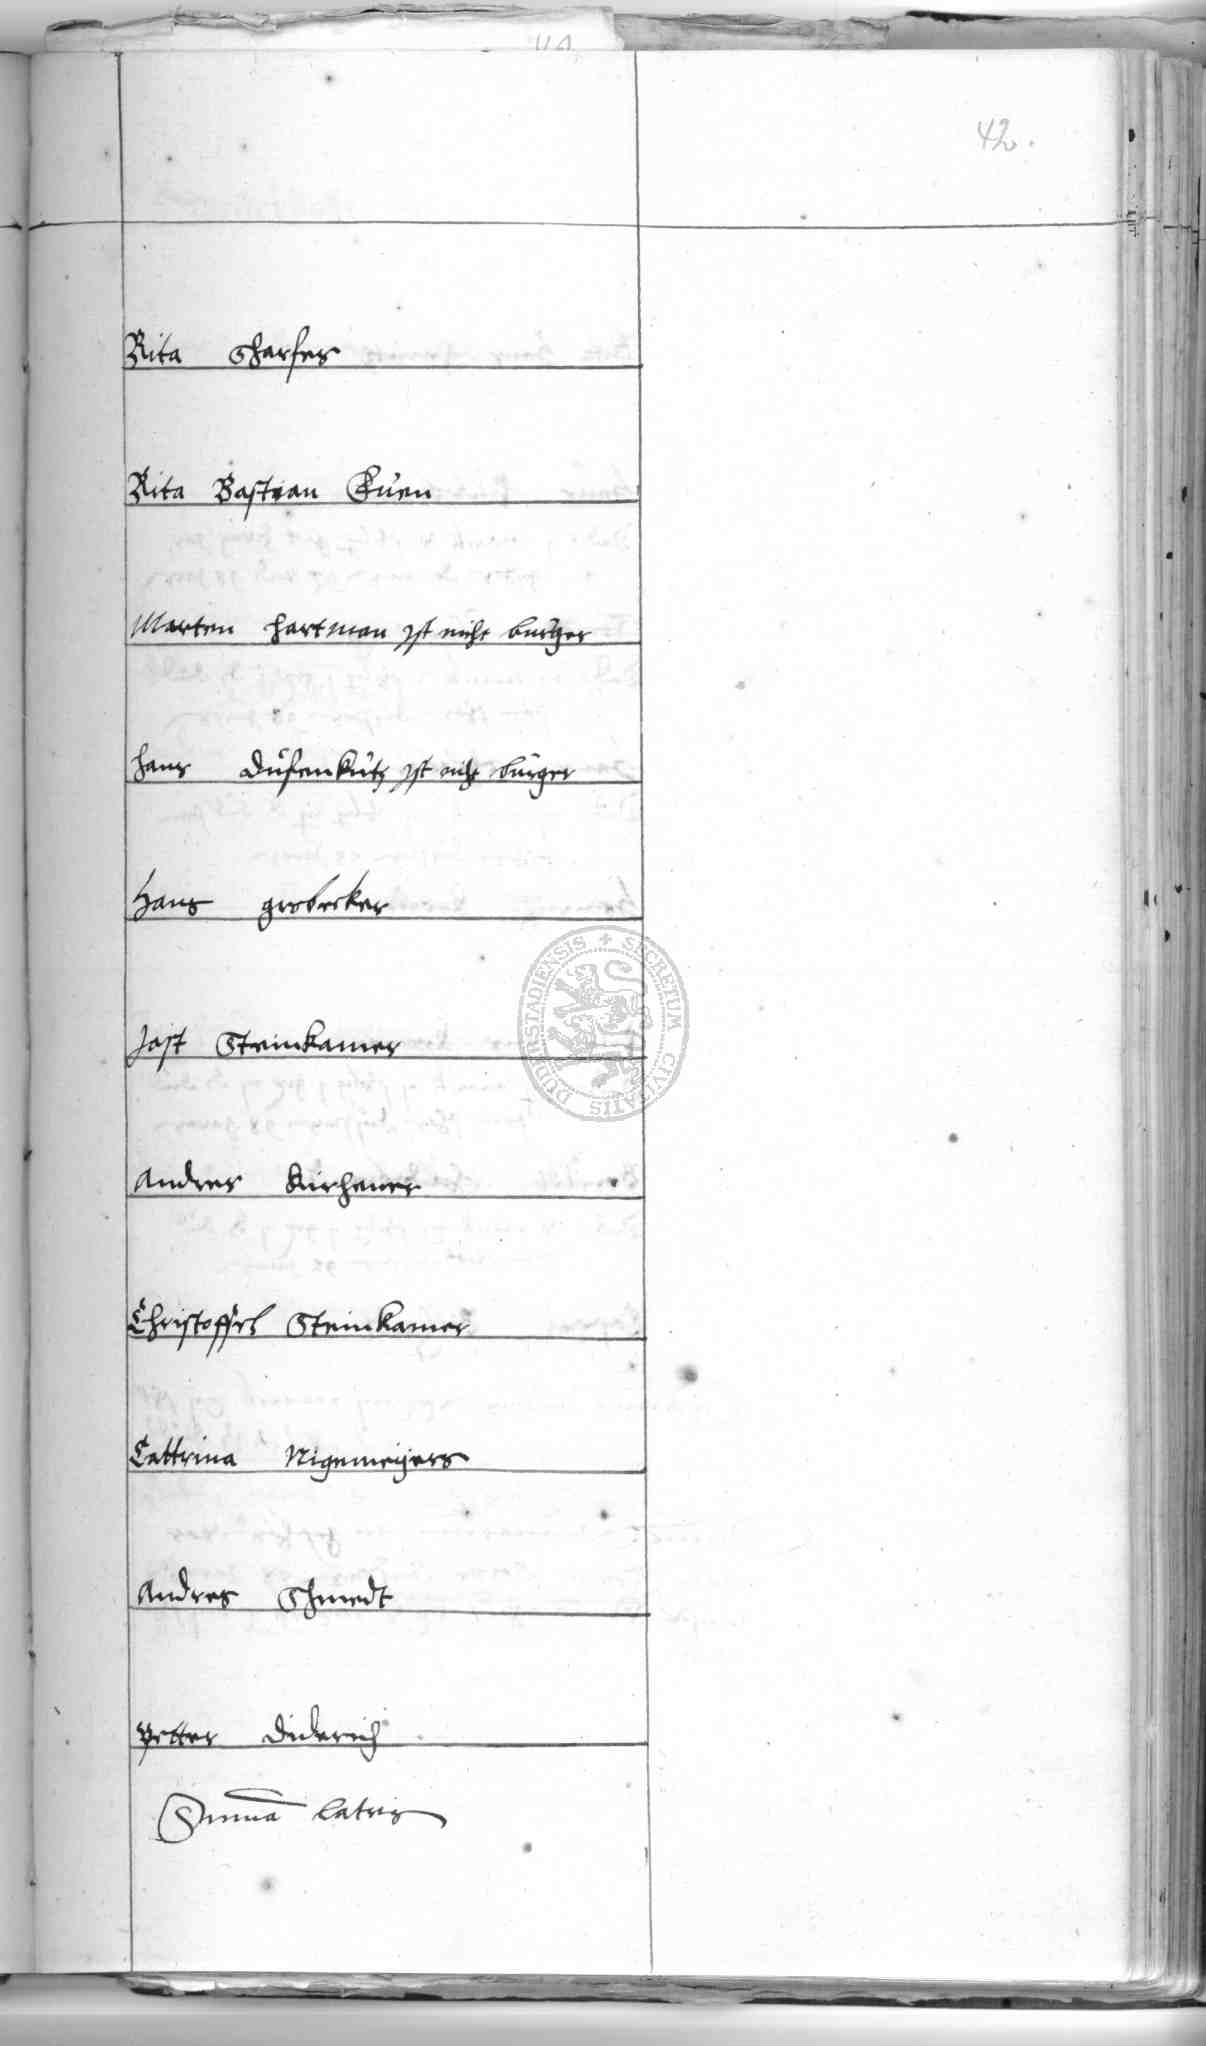 42.
Rita Scharfes
Rita Bastian Cuen
Marten Hartman ist nicht burger
Hans Düsenkütz ist nicht burger
Hans grobecker
Jost Steinkamer
Andres Kirchener
Christoffel Steinkamer
Cattrina Nigemeijers
Andres Schmedt
Petter Diderich
Summa lateris
SECRETUM CIVITATIS DUDERSTADIENSIS